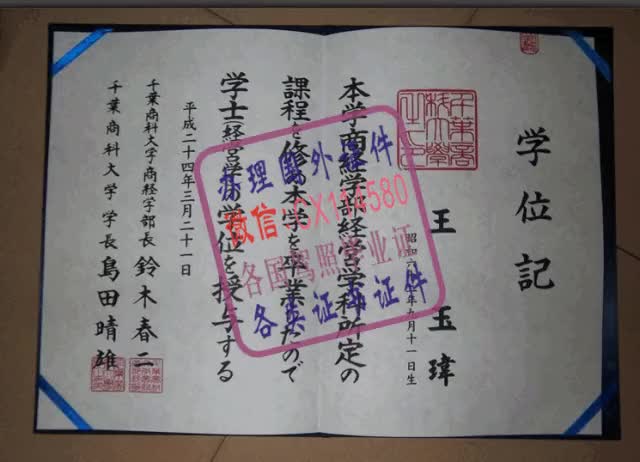 学位記
王 玉瑋
年九月十一日生
本学商経学部経営学科所定の
課程を修め本学を卒業したので
学士(経営学)の学位を授与する
平成二十四年三月二十一日
千葉商科大学商経学部長 鈴木春二
千葉商科大学学長 島田晴雄
办理国外证件
微信:CX114580
各国驾照毕业证
各类证件证件